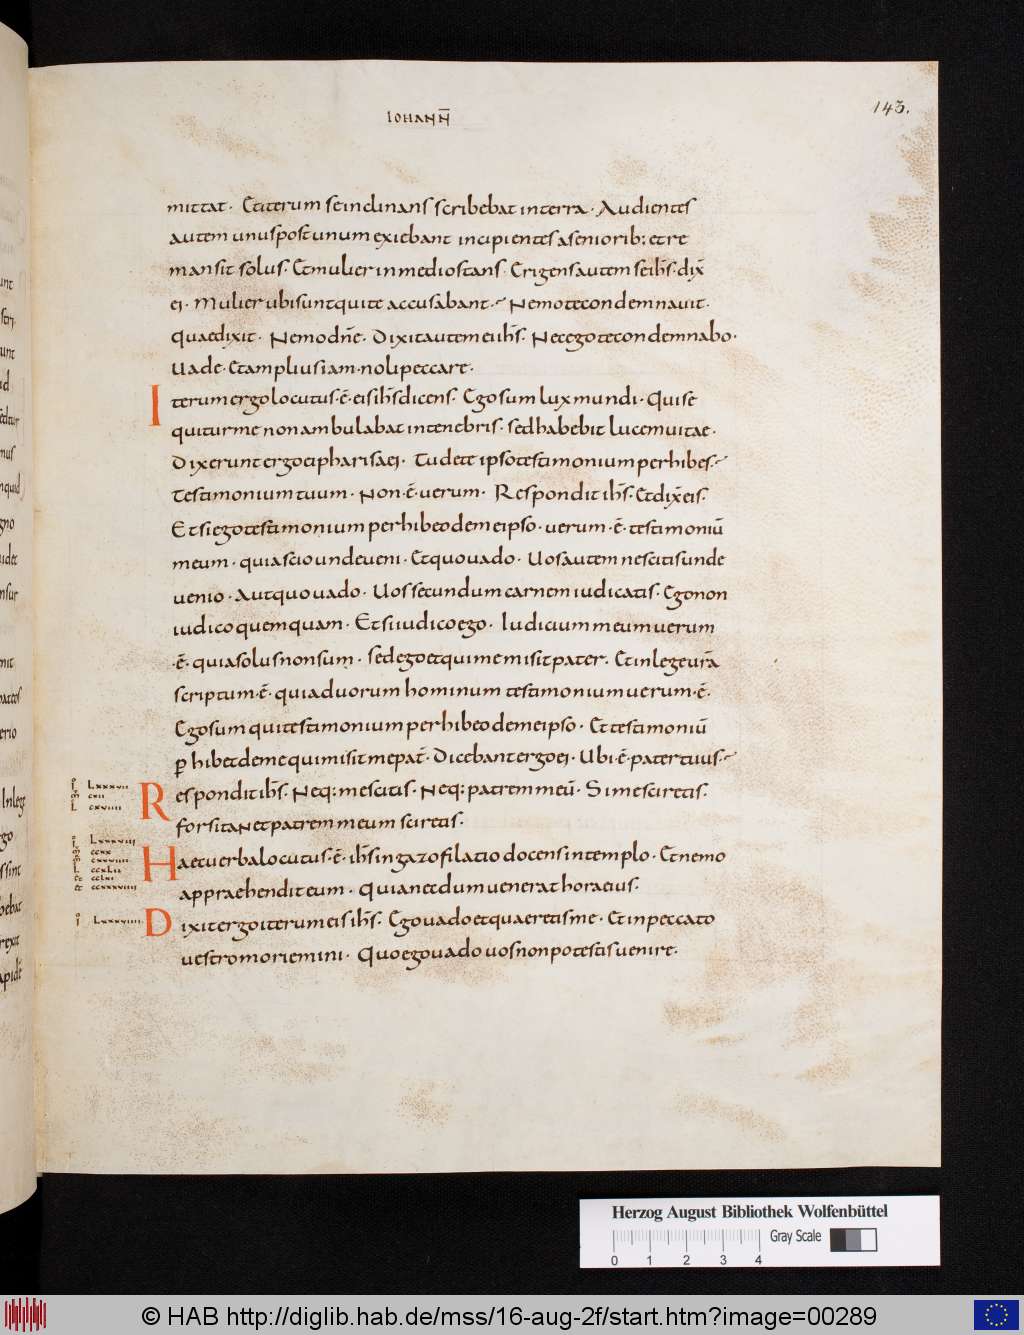 IOHANN̄
143.
mittat. Et iterum se inclinans scribebat in terra. Audientes
autem unus post unum exiebant incipientes a seniorib: et re
mansit solus. Et mulier in medio stans. Erigens autem se ih̅s. dix̅
ei. Mulier ubi sunt qui te accusabant. Nemo te condemnauit.
Quae dixit. Nemo dn̅e. Dixit autem ei ih̅s. Nec ego te condemnabo.
Uade. Et amplius iam noli peccare.
Iterum ergo locutus .e̅. eis ih̅s dicens. Ego sum lux mundi. Qui se
quitur me non ambulabat in tenebris. sed habebit lucem uitae.
Dixerunt ergo ei pharisaei. Tu de te ipso testimonium perhibes.
Testimonium tuum. Non .e̅. uerum. Respondit ih̅s. Et dix̅ eis.
Et si ego testimonium perhibeo de me ipso. uerum .e̅. testimoniu̅
meum. quia scio unde ueni. Et quo uado. Uos autem nescitis unde
uenio. Aut quo uado. Uos secundum carnem iudicatis. Ego non
iudico quemquam. Et si iudico ego. Iudicium meum uerum
.e̅. quia solus non sum. sed ego et qui me misit pater. Et in lege ur̅a
scriptum .e̅. quia duorum hominum testimonium uerum .e̅.
Ego sum qui testimonium perhibeo de me ipso. Et testimoniu̅
p̲hibet de me qui misit me pat̅. Dicebant ergo ei. Ubi .e̅. pater tuus.
Lxxxvii
cxii
L cxviiii
Respondit ih̅s. Neq: me scitis. Neq: patrem meu̅. Si me sciretis.
forsitan et patrem meum sciretis.
Lxxxviii
Haec uerba locutus .e̅. ih̅s in gazofilatio docens in templo. Et nemo
appraehendit eum. Quia necdum uenerat hora eius.
Lxxxviiii
Dixit ergo iterum eis ih̅s. Ego uado et quaeretis me. Et in peccato
uestro moriemini. Quo ego uado uos non potestis uenire.
Herzog August Bibliothek Wolfenbüttel
Gray Scale
0 1 2 3 4
© HAB http://diglib.hab.de/mss/16-aug-2f/start.htm?image=00289